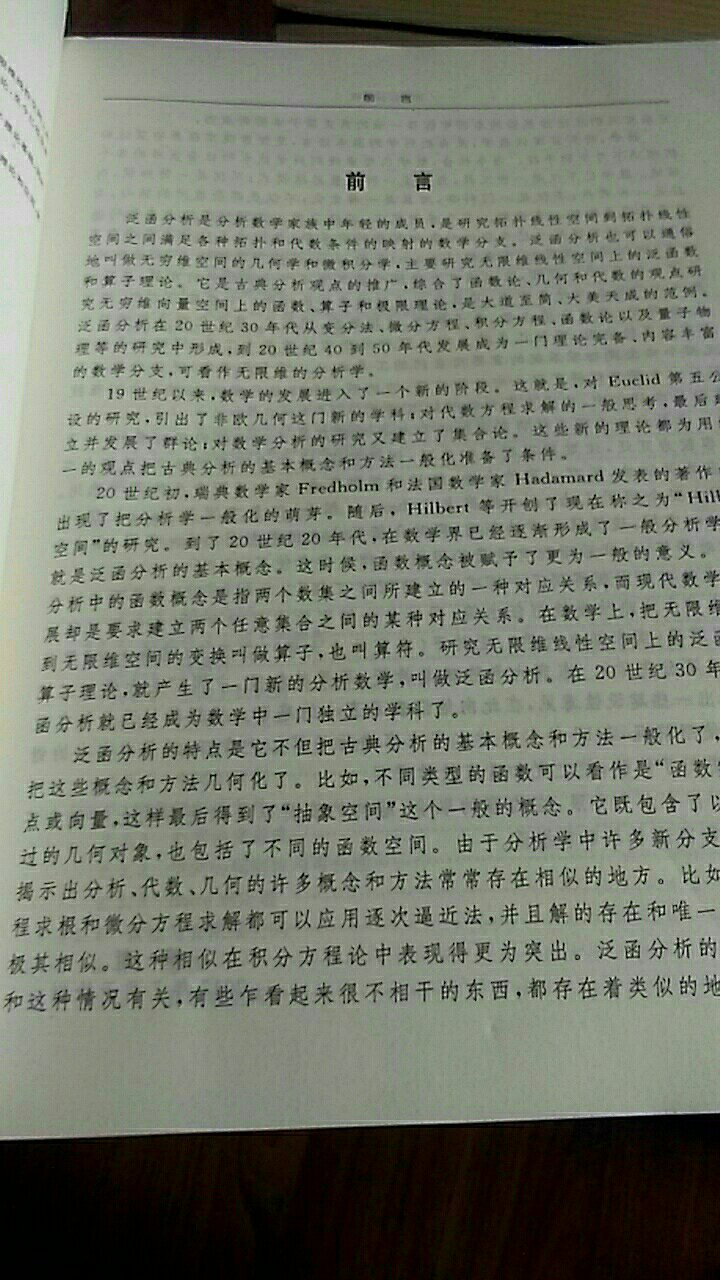 前 言
前 言
泛函分析是分析数学家族中年轻的成员,是研究拓扑线性空间到拓扑线性
空间之间满足各种拓扑和代数条件的映射的数学分支。泛函分析也可以通俗
地叫做无穷维空间的几何学和微积分学,主要研究无限维线性空间上的泛函数
和算子理论。它是古典分析观点的推广,综合了函数论、几何和代数的观点研
究无穷维向量空间上的函数、算子和极限理论,是大道至简、大美天成的范例。
泛函分析在 20 世纪 30 年代从变分法、微分方程、积分方程、函数论以及量子物
理等的研究中形成,到 20 世纪 40 到 50 年代发展成为一门理论完备、内容丰富
的数学分支,可看作无限维的分析学。
19 世纪以来,数学的发展进入了一个新的阶段。这就是,对 Euclid 第五公
设的研究,引出了非欧几何这门新的学科;对代数方程求解的一般思考,最后
立并发展了群论;对数学分析的研究又建立了集合论。这些新的理论都为用
一的观点把古典分析的基本概念和方法一般化准备了条件。
20 世纪初,瑞典数学家 Fredholm 和法国数学家 Hadamard 发表的著作
出现了把分析学一般化的萌芽。随后,Hilbert 等开创了现在称之为“Hilb
空间”的研究。到了 20 世纪 20 年代,在数学界已经逐渐形成了一般分析学
就是泛函分析的基本概念。这时候,函数概念被赋予了更为一般的意义。
分析中的函数概念是指两个数集之间所建立的一种对应关系,而现代数学
展却是要求建立两个任意集合之间的某种对应关系。在数学上,把无限维
到无限维空间的变换叫做算子,也叫算符。研究无限维线性空间上的泛函
算子理论,就产生了一门新的分析数学,叫做泛函分析。在 20 世纪 30 年
函分析就已经成为数学中一门独立的学科了。
泛函分析的特点是它不但把古典分析的基本概念和方法一般化了,
把这些概念和方法几何化了。比如,不同类型的函数可以看作是“函数
点或向量,这样最后得到了“抽象空间”这个一般的概念。它既包含了以
过的几何对象,也包括了不同的函数空间。由于分析学中许多新分支
揭示出分析、代数、几何的许多概念和方法常常存在相似的地方。比如
程求根和微分方程求解都可以应用逐次逼近法,并且解的存在和唯一
极其相似。这种相似在积分方程论中表现得更为突出。泛函分析的
和这种情况有关,有些乍看起来很不相干的东西,都存在着类似的地